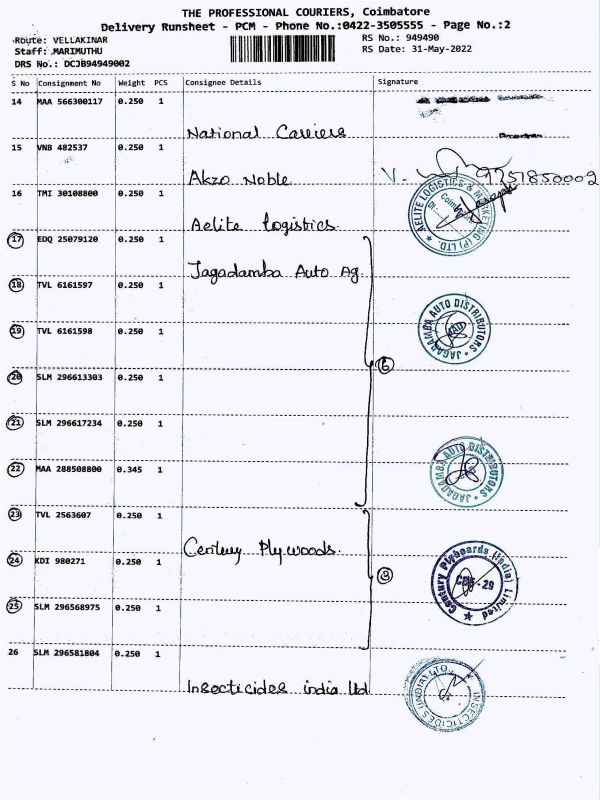 THE PROFESSIONAL COURIERS, Coimbatore
Delivery Runsheet - PCM - Phone No.:0422-3505555 - Page No.:2
Route: VELLAKINAR
RS No.: 949490
Staff: MARIMUTHU
RS Date: 31-May-2022
DRS No.: DCJB94949002
S No Consignment No Weight PCS Consignee Details Signature
14 MAA 566300117 0.250 1
National Carriers
15 VNB 482537 0.250 1
Akzo Noble
9751850002
16 TMI 30108800 0.250 1
Aelite Logistics.
AELITE LOGISTICS & MARKETING (P) LTD.
17 EDQ 25079120 0.250 1
Jagadamba Auto Ag.
18 TVL 6161597 0.250 1
19 TVL 6161598 0.250 1
JAGADAMBA AUTO DISTRIBUTORS
6
20 SLM 296613303 0.250 1
21 SLM 296617234 0.250 1
22 MAA 288508800 0.345 1
JAGADAMBA AUTO DISTRIBUTORS
23 TVL 2563607 0.250 1
Century Plywoods.
24 KDI 980271 0.250 1
3
Century Plyboards (India) Limited
25 SLM 296568975 0.250 1
26 SLM 296581804 0.250 1
Insecticides india Ltd
INSECTICIDES (INDIA) LTD.